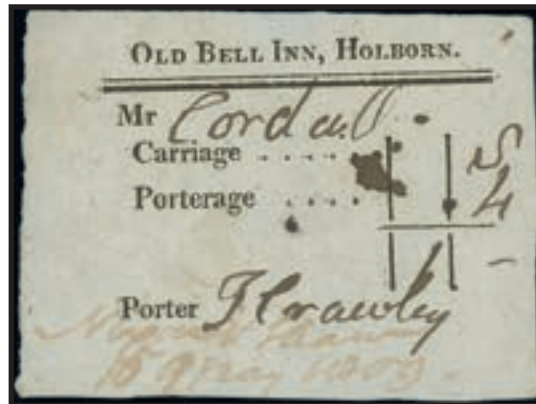 OLD BELL INN, HOLBORN.
Mr Cordall
Carriage .... 5
Porterage .... 4
Porter J Crawley
May